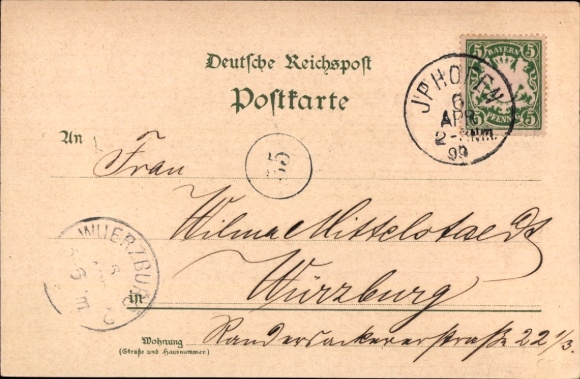 Deutsche Reichspost
Postkarte
5 BAYERN 5
5 PFENNIG 5
JPHOFEN
6
APR
2-3Nm.
99
An Frau
35
Wilma Mittelstaedt
WUERZBURG 2
in Würzburg
Wohnung
(Straße und Hausnummer)
Randersackererstraße 22 1/3.